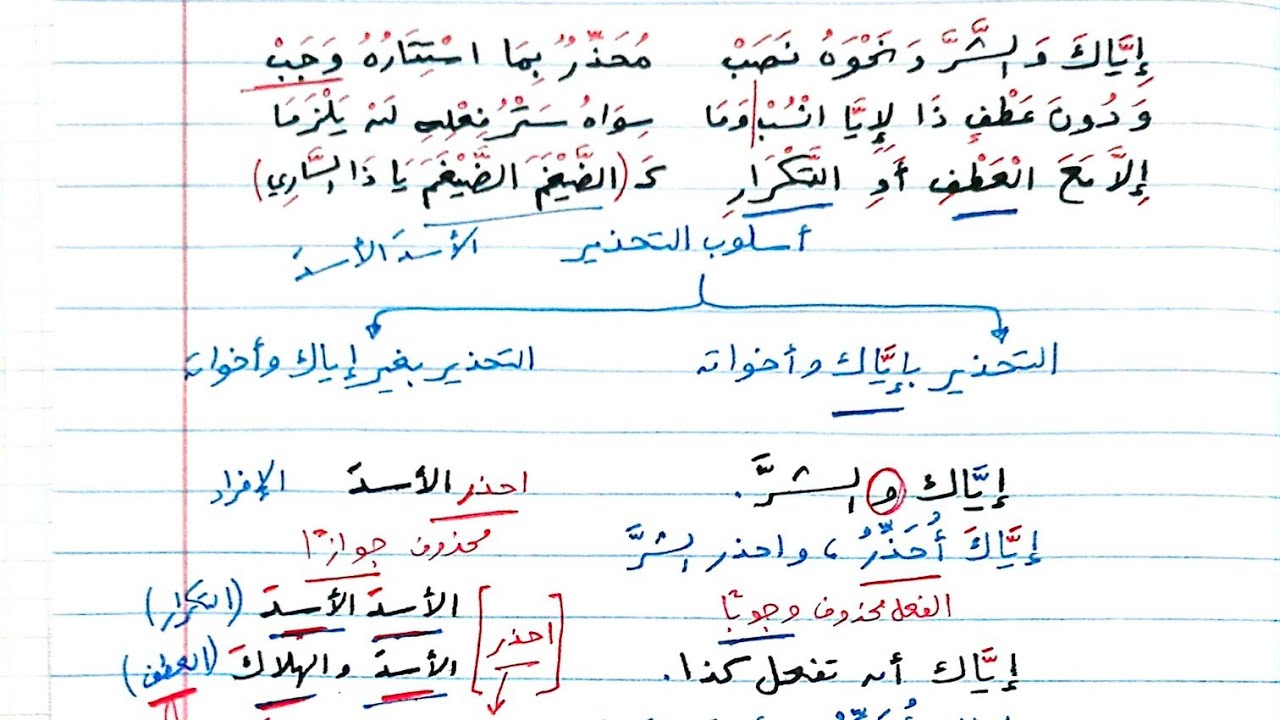 إِيَّاكَ وَالشَّرَّ وَنَحْوَهُ نَصَبْ مُحَذِّرٌ بِمَا اسْتِتَارُهُ وَجَبْ
وَدُونَ عَطْفٍ ذَا لِإِيَّا انْسُبْ وَمَا سِوَاهُ سَتْرُ فِعْلِهِ لَنْ يَلْزَمَا
إِلاَّ مَعَ الْعَطْفِ أَوِ التَّكْرَارِ كَـ (الضَّيْغَمَ الضَّيْغَمَ يَا ذَا السَّارِي)
أسلوب التحذير الأسدَ الأسدَ
التحذير بإيَّاك وأخواته التحذير بغير إياك وأخواته
إيَّاك والشرَّ. احذر الأسدَ الإفراد
إيَّاكَ أُحَذِّرُ، واحذر الشرَّ محذوف جوازًا
الفعل محذوف وجوبًا [احذر] الأسدَ الأسدَ (التكرار)
إيَّاك أن تفعل كذا. الأسدَ والهلاكَ (العطف)